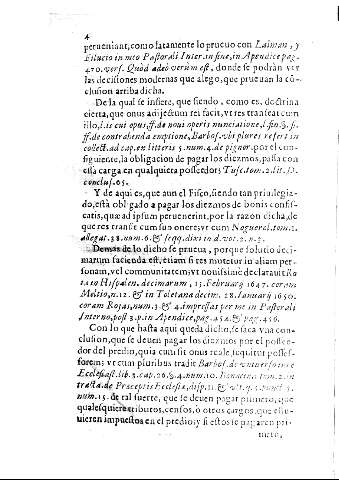 4
perueniant, como latamente lo prueuo con Laiman, y
Filucio in meo Pastorali Inter. in fine, in Apendice pag.
470. vers. Quòd adeò verum est, donde se podràn ver
las decisiones modernas que alego, que prueuan la cō-
clusion arriba dicha.
De la qual se infiere, que siendo, como es, doctrina
cierta, que onus adjectum rei facit, vt res transeat cum
illo, l. is cui opus, ff. de noui operis nunciatione, l. fin. §. 
ff. de contrahenda emptione, Barbos. vbi plures refert in
collect. ad cap. ex litteris 5. num. 4. de pignor. por el con-
siguiente, la obligacion de pagar los diezmos, passa con
essa carga en qualquiera posseedor; Tusc. tom. 2. lit. D.
conclus. 65.
Y de aqui es, que aun el Fisco, siendo tan priuilegia-
do, està obligado a pagar los diezmos de bonis confis-
catis, quæ ad ipsum peruenerint, por la razon dicha, de
que res transit cum suo onere; vt cum Noguerol. tom. 2.
allegat. 38. num. 6. & seqq. dixi in d. vot. 2. n. 2.
Demas de lo dicho se prueua, porque solucio deci-
marum facienda est, etiam si res mutetur in aliam per-
sonam, vel communitatem; vt nouissimè declarauit Ro
ta in Hispalen. decimarum, 15. Februarij 1647. coram
Meltio, n. 12. & in Toletana decim. 28. Ianuarij 1650.
coram Rojas, num. 3. & 4. impressas per me in Pastorali
Interno, post 3. p. in Apendice, pag. 454. & pag. 456.
Con lo que hasta aqui queda dicho, se saca vna con-
clusion, que se deuen pagar los diezmos por el possee-
dor del predio, quia cum sit onus reale, sequitur posses-
sorem; vt cum pluribus tradit Barbos. de vniuerso iure
Ecclesiast. lib. 3. cap. 26. §. 4. num. 10. tom. 2. in
tracta. de Præceptis Ecclesiæ, disp. 
num. 15. de tal suerte, que se deuen pagar primero, que
qualesquiere tributos, censos, ò otros cargos, que estu-
uieren impuestos en el predio; y si estos se pagaren pri-
mero,